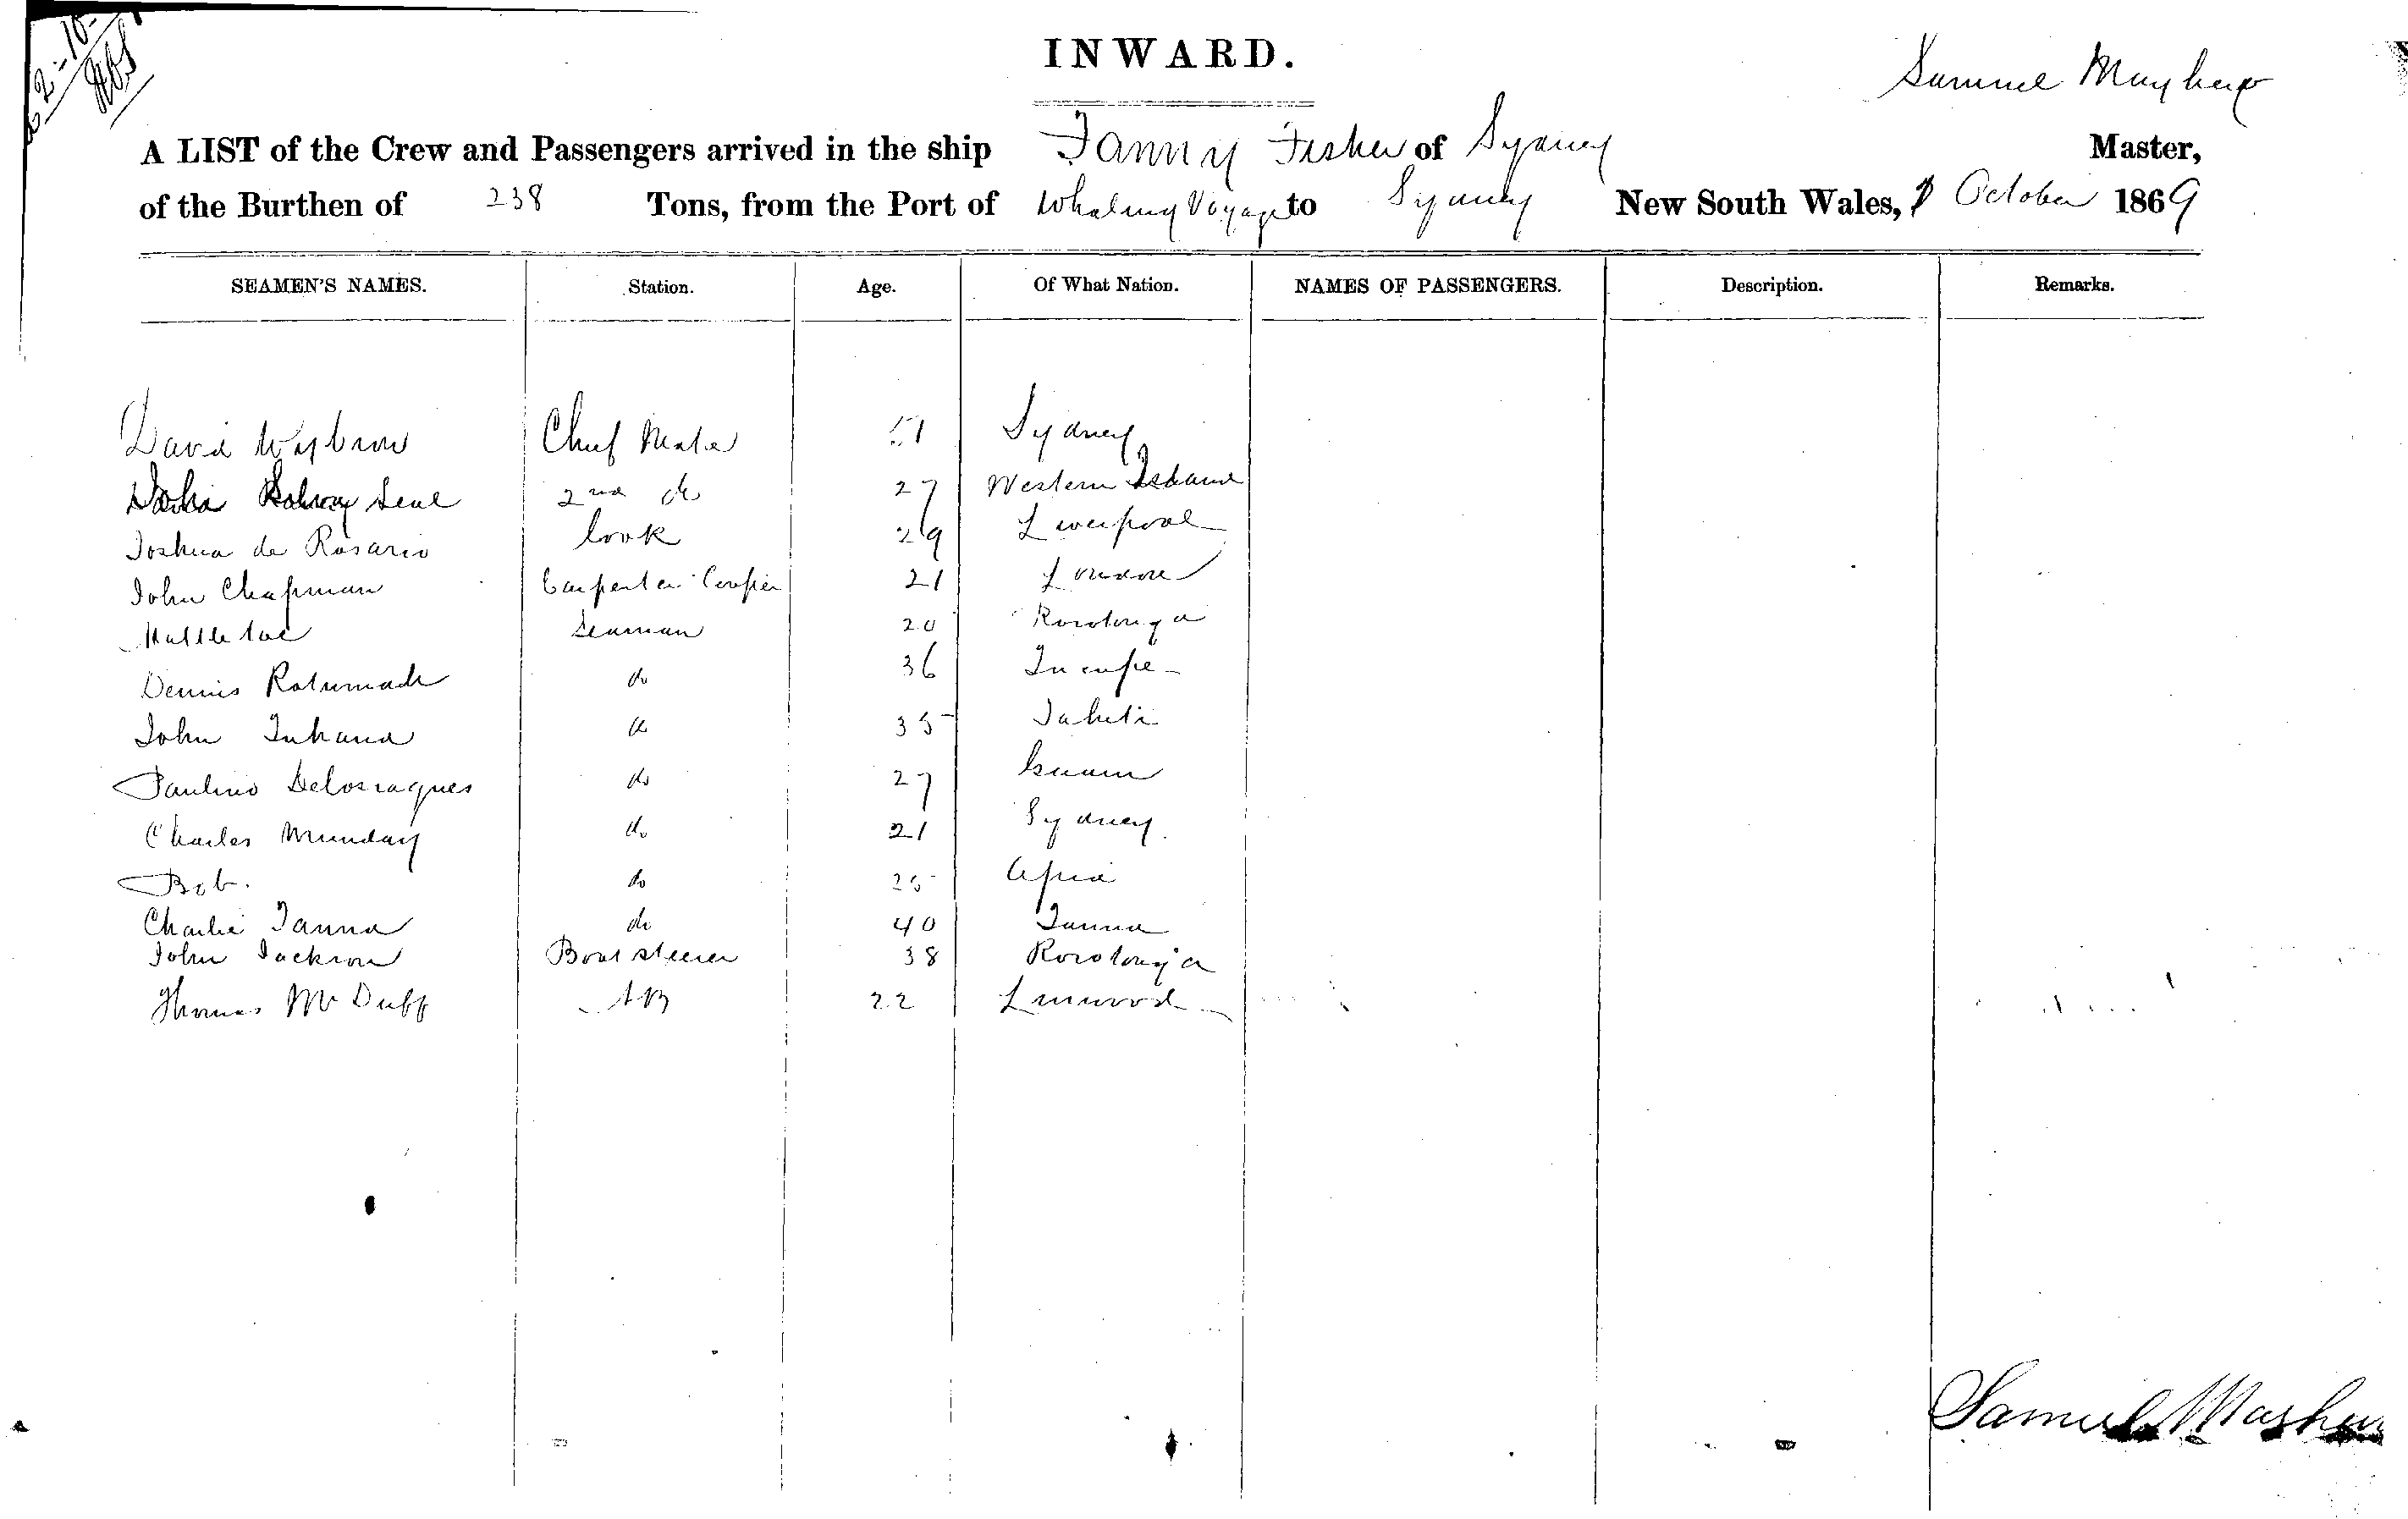 INWARD.
Samuel Mayhew
A LIST of the Crew and Passengers arrived in the ship Fanny Fisher of Sydney Master,
of the Burthen of 238 Tons, from the Port of Whaling Voyage to Sydney New South Wales, October 1869
SEAMEN'S NAMES. Station. Age. Of What Nation. NAMES OF PASSENGERS. Description. Remarks.
David Wybrow Chief Mate 51 Sydney
2nd do 27 Western Island
Joshua de Rosario Cook 29 Liverpool
John Chapman Carpenter Cooper 21 London
Seaman 20 Rorotonga
Dennis Rotumah do 36
John do 35 Tahiti
Paulino do 27 Guam
Charles Munday do 21 Sydney
Bob. do 25 Apia
Charlie Tanna do 40 Tanna
John Jackson Boatsteerer 38 Rorotonga
Thomas McDuff AB 22
Samuel Mayhew